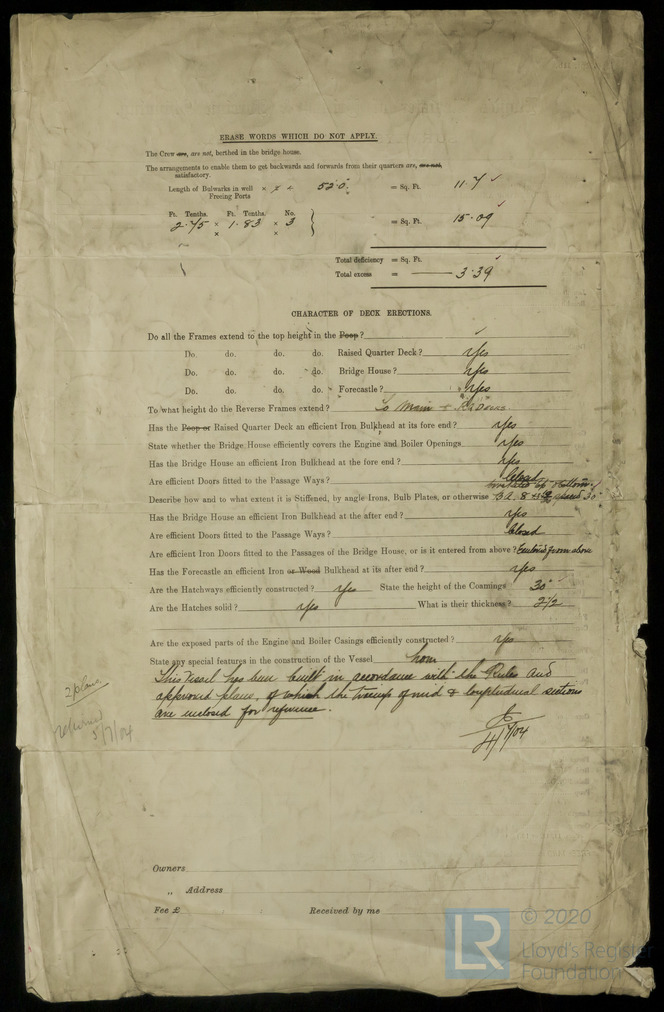 ERASE WORDS WHICH DO NOT APPLY.
The Crew are, are not, berthed in the bridge house.
The arrangements to enable them to get backwards and forwards from their quarters are, are not,
satisfactory.
Length of Bulwarks in well × 52.0 = Sq. Ft. 11.7
Freeing Ports
Ft. Tenths. Ft. Tenths. No.
2.75 × 1.83 × 3 } = Sq. Ft. 15.09
× ×
Total deficiency = Sq. Ft.
Total excess = 3.39
CHARACTER OF DECK ERECTIONS.
Do all the Frames extend to the top height in the Poop?
Do. do. do. do. Raised Quarter Deck? Yes
Do. do. do. do. Bridge House? Yes
Do. do. do. do. Forecastle? Yes
To what height do the Reverse Frames extend? To Main &
Has the Poop or Raised Quarter Deck an efficient Iron Bulkhead at its fore end? Yes
State whether the Bridge House efficiently covers the Engine and Boiler Openings Yes
Has the Bridge House an efficient Iron Bulkhead at the fore end? Yes
Are efficient Doors fitted to the Passage Ways? Closed
Describe how and to what extent it is Stiffened, by angle-Irons, Bulb Plates, or otherwise
Has the Bridge House an efficient Iron Bulkhead at the after end? Yes
Are efficient Doors fitted to the Passage Ways? Closed
Are efficient Iron Doors fitted to the Passages of the Bridge House, or is it entered from above? Entered from above
Has the Forecastle an efficient Iron or Wood Bulkhead at its after end? Yes
Are the Hatchways efficiently constructed? Yes State the height of the Coamings 30"
Are the Hatches solid? Yes What is their thickness? 2½
Are the exposed parts of the Engine and Boiler Casings efficiently constructed? Yes
State any special features in the construction of the Vessel None
This vessel has been built in accordance with the Rules and
approved plans, of which the tracings of mid & longitudinal sections
are enclosed for reference.
4/7/04
2 plans
returned
5/7/04
Owners
" Address
Fee £ Received by me
LR © 2020
Lloyd's Register
Foundation